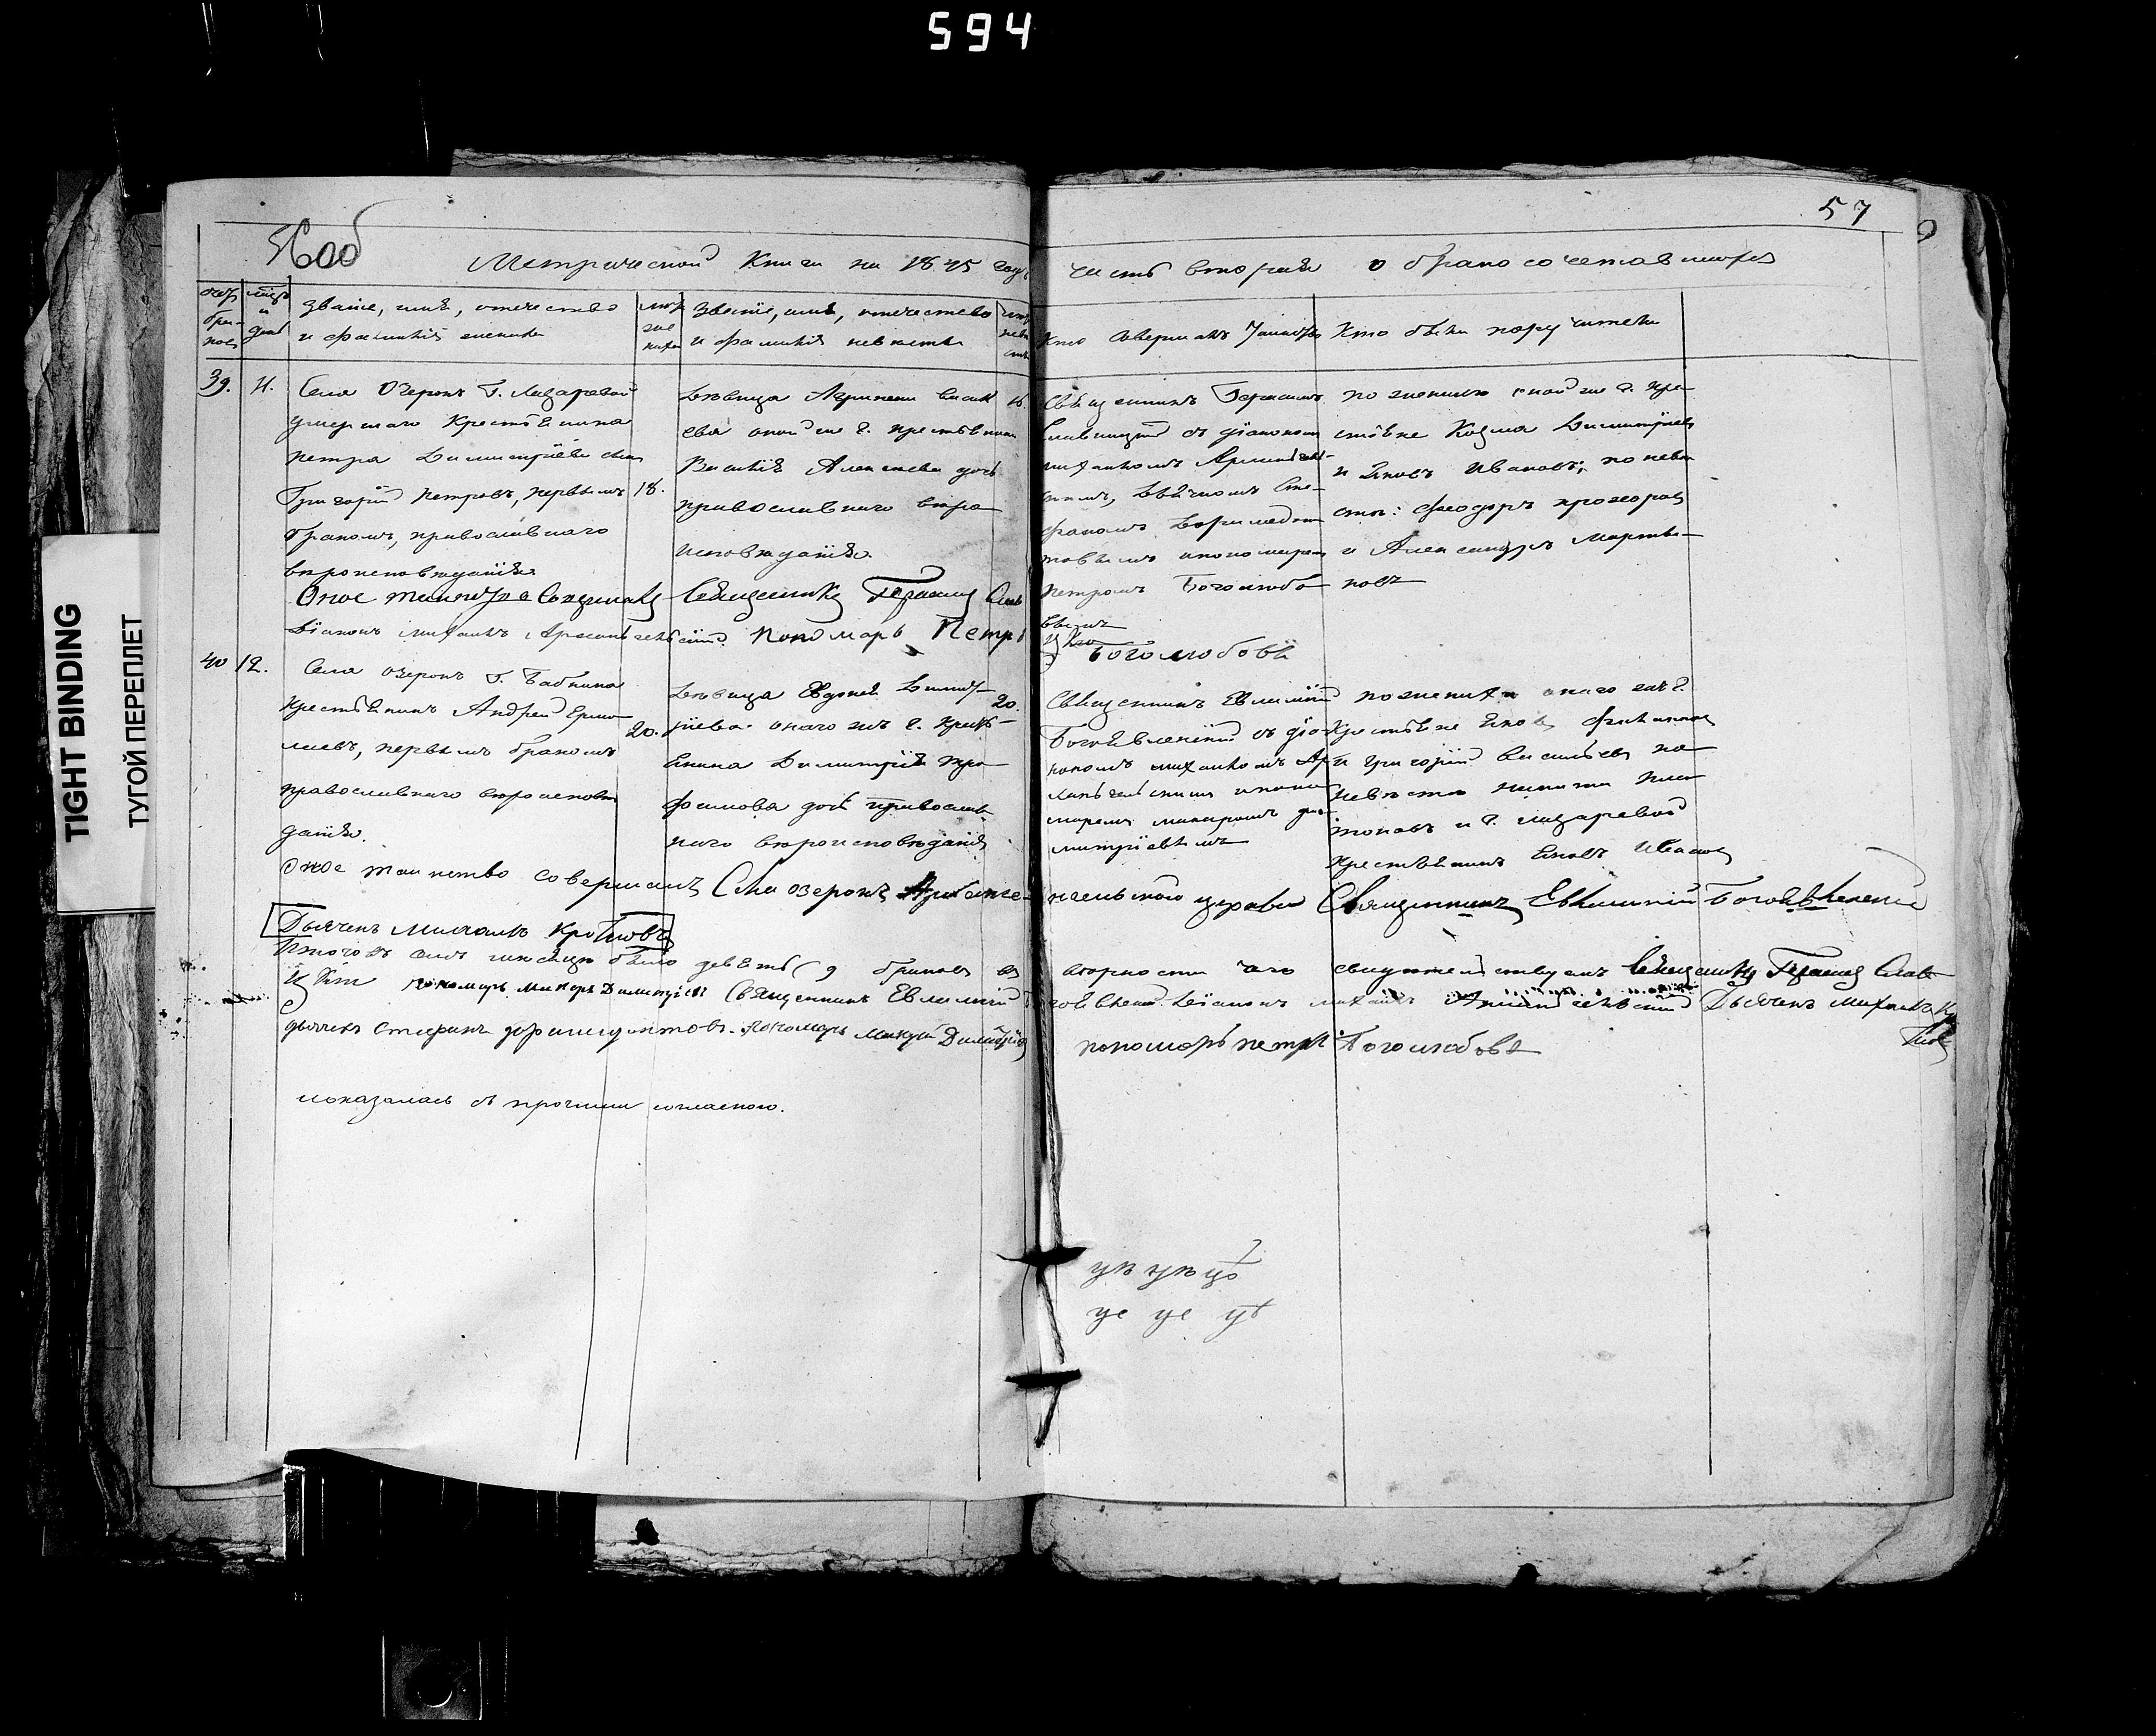 594
TIGHT BINDING
ТУГОЙ ПЕРЕПЛЕТ
57
56 об
Метрической Книги на 1845 годъ часть вторая о бракосочетавшихся
званіе, имя, отечество
и фамилія жениха
званіе, имя, отечество
и фамилія невесты
Кто совершалъ Таинство
Кто были поручители
39. 11.
Села Озерокъ Г. Лазаревой
умершаго Крестьянина
Петра Димитріева сынъ
Григорій Петровъ, первымъ
бракомъ, православнаго
вѣроисповѣданія
18.
Дѣвица Агрипена Василь
ева оной же Г. крестьянина
Василія Алексѣева дочь
православнаго вѣро
исповѣданія.
16.
Священникъ Герасимъ
Славницкій съ діакономъ
Михаиломъ Архангель
скимъ, Дьячкомъ Сте
фаномъ Дормидон
товымъ и пономаремъ
Петромъ Боголюбо
вымъ
по женихѣ оной же Г. кре
стьяне Козма Димитріевъ
и Яковъ Ивановъ; по невѣ
стѣ: Феодоръ Прохоровъ
и Александръ Марты
новъ
Оное таинство Совершилъ Священникъ Герасимъ Слав
Діаконъ Михаилъ Архангельскій Пономарь Петръ
Боголюбовъ
40 12.
Села Озерокъ Г. Бабкина
Крестьянинъ Андрей Ермо
лаевъ, первымъ бракомъ
православнаго вѣроисповѣ
данія.
20.
Дѣвица Евдокія Димит
ріева онаго же Г. Кресть
янина Димитрія Тро
фимова дочь православ
наго вѣроисповѣданія
20.
Священникъ Евлампій
Богоявленскій съ діа
кономъ Михаиломъ Ар
хангельскимъ и поно
маремъ Макаромъ Ди
митріевымъ
по женихѣ онаго же Г.
Крестьяне Яковъ Филиповъ
и Григорій Васильевъ по
невѣстѣ Никита Пла
тоновъ и Г. Лазаревой
крестьянинъ Яковъ Ивановъ
Оное таинство совершалъ Села Озерокъ Архангельской церкви Священникъ Евлампій Богоявленскій
Дьячекъ Михаилъ Кротковъ
Итого въ семъ мѣсяцѣ было девять (9 браковъ въ вѣрности чего свидѣтельствуемъ Священникъ Герасимъ Слав
Пономарь Макаръ Димитріевъ Священникъ Евлампій Богоявленскій Діаконъ Михаилъ Архангельскій Дьячекъ Михаилъ Кро
дьячекъ Стефанъ Дормидонтовъ. Пономарь Макарій Димитріевъ пономарь петръ Боголюбовъ
показалась съ прочими согласною.